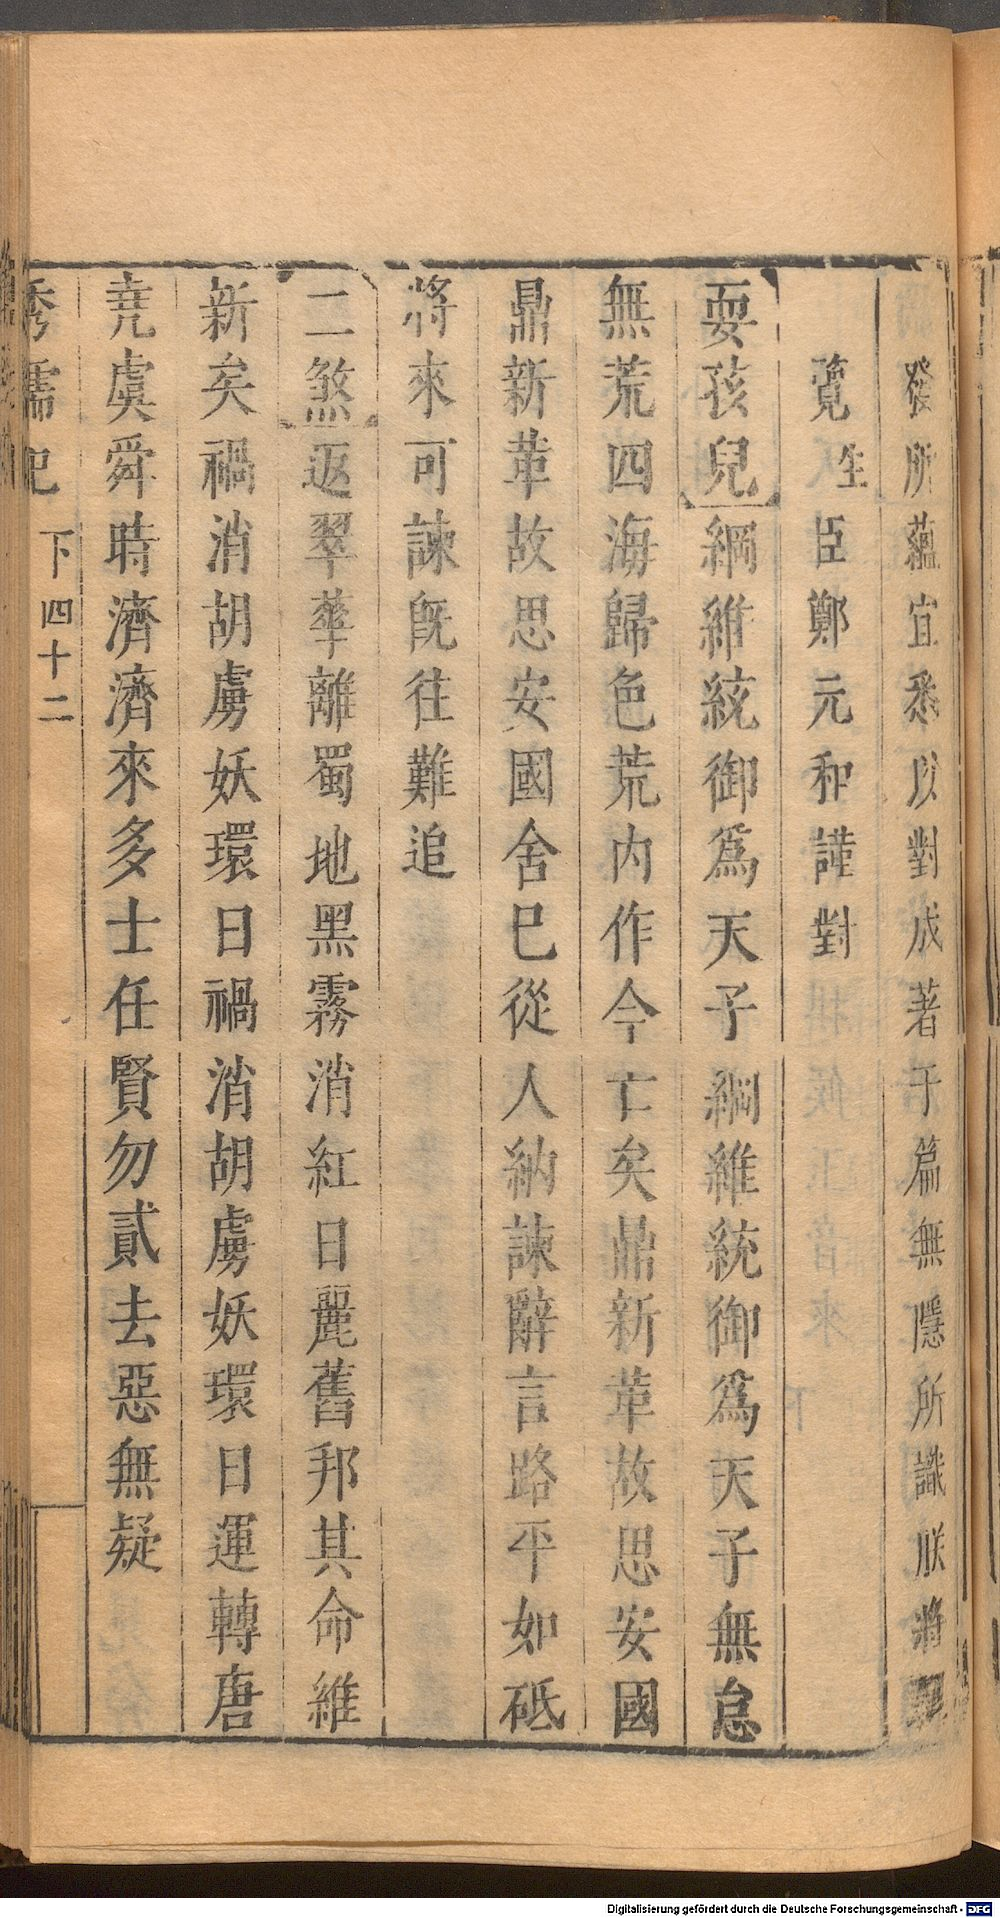 發所蘊宜悉以對成著于篇無隱所識朕將親
覽生臣鄭元和謹對
耍孩兒綱維統御爲天子綱維統御爲天子無怠
無荒四海歸色荒内作今亡矣鼎新革故思安國
鼎新革故思安國舍巳從人納諫辭言路平如砥
將來可諫既往難追
二煞返翠華離蜀地黑霧消紅日麗舊邦其命維
新矣禍消胡虜妖環日禍消胡虜妖環日運轉唐
堯虞舜時濟濟來多士任賢勿貳去惡無疑
秀襦记 下 四十二
Digitalisierung gefördert durch die Deutsche Forschungsgemeinschaft - DFG